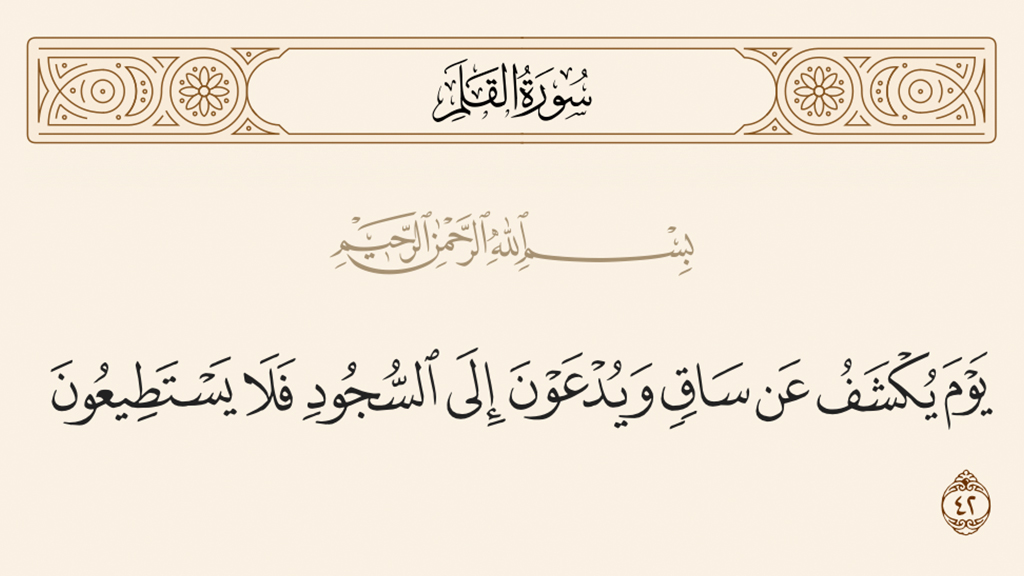 سُورَةُ القَلَمِ
بِسْمِ ٱللَّهِ ٱلرَّحْمَٰنِ ٱلرَّحِيمِ
يَوْمَ يُكْشَفُ عَن سَاقٍ وَيُدْعَوْنَ إِلَى ٱلسُّجُودِ فَلَا يَسْتَطِيعُونَ
٤٢